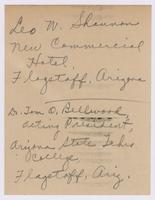 Leo W. Shannon
New Commercial
Hotel,
Flagstaff, Arizona
Dr. Tom O. Bellwood,
acting President,
Arizona State Tchrs
College,
Flagstaff, Ariz.